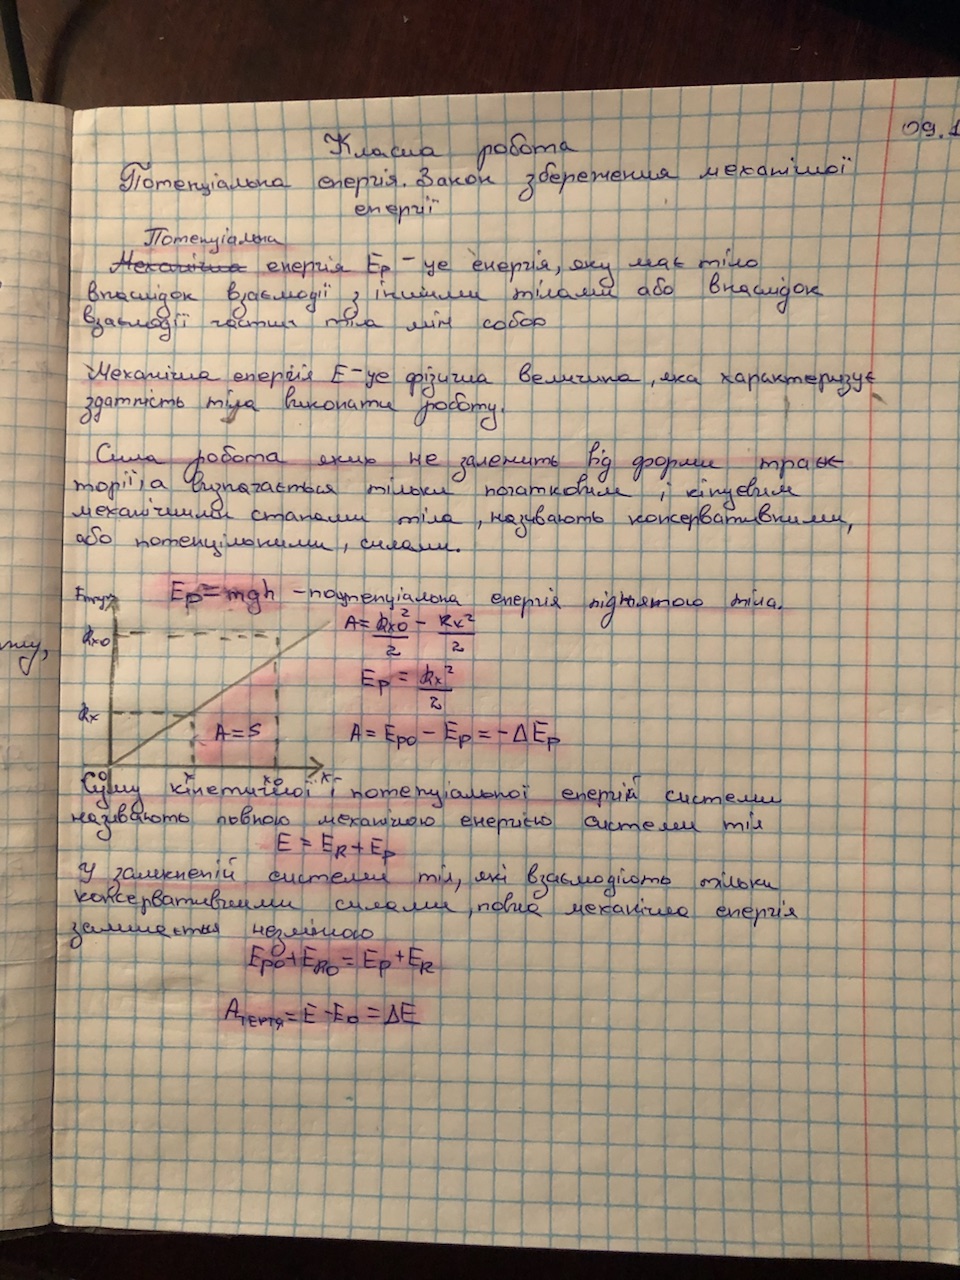 09.1
Класна робота
Потенціальна енергія. Закон збереження механічної
енергії
Потенціальна
Механічна енергія Eр - це енергія, яку має тіло
внаслідок взаємодії з іншими тілами або внаслідок
взаємодії частин тіла між собою
Механічна енергія E - це фізична величина, яка характеризує
здатність тіла виконати роботу.
Сила робота якою не залежить від форми траєк
торії, а визначається тільки початковим і кінцевим
механічними станами тіла, називають консервативними,
або потенцільними, силами.
Eр = mgh - поутенціальна енергія піднятого тіла.
Fпруж
kx0
kx
A = S
0 x x0 x
A = kx0²/2 - kx²/2
Eр = kx²/2
A = Eр0 - Eр = -ΔEр
Суму кінетичної і потенціальної енергій системи
називають повною механічною енергією системи тіл
E = Ek + Eр
У замкненій системи тіл, які взаємодіють тільки
консервативними силами, повна механічна енергія
залишається незмінною
Eр0 + Ek0 = Eр + Ek
Aтертя = E - E0 = ΔE